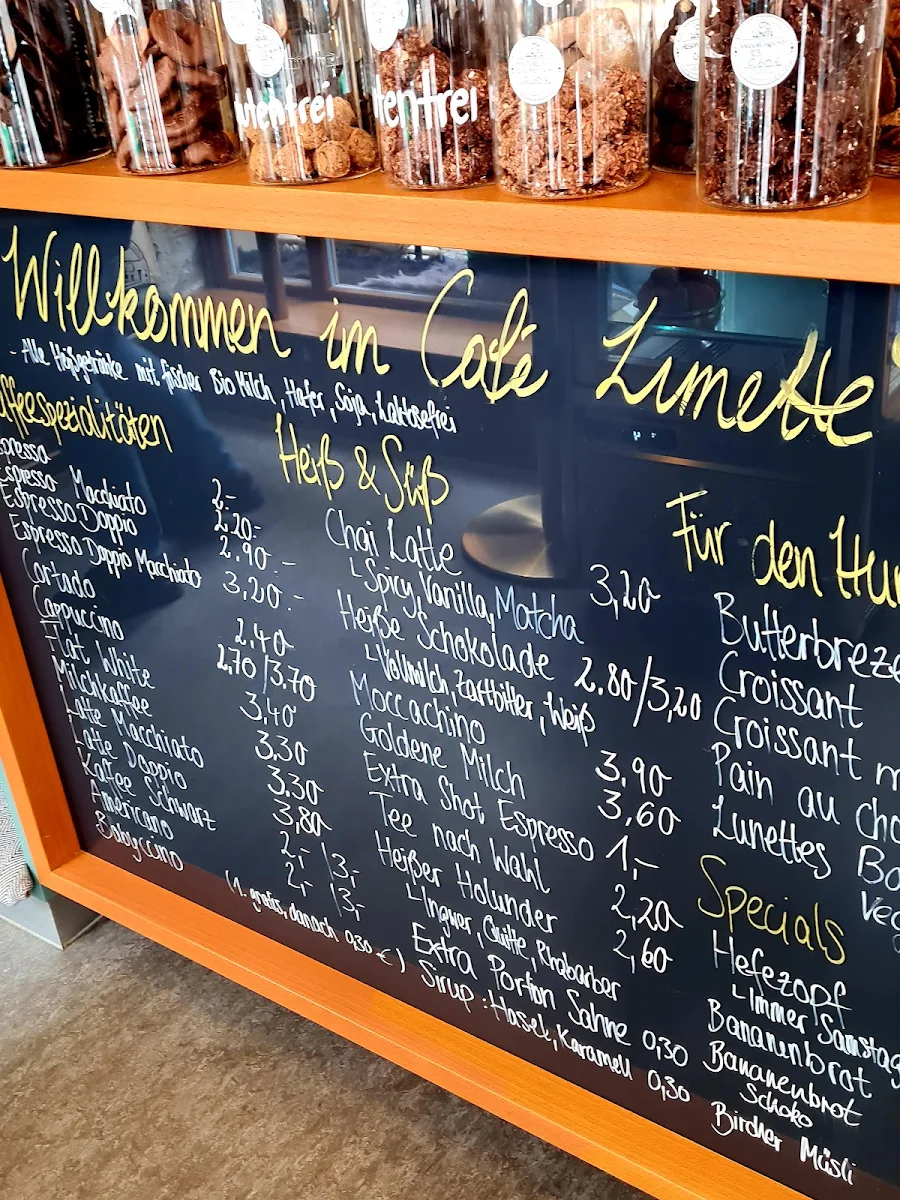 Willkommen im Café Limette
- Alle Heißgetränke mit frischer Bio Milch, Hafer, Soja, Laktosefrei
ffeespezialitäten
spresso 2,-
Espresso Macchiato 2.20.-
Espresso Doppio 2.90.-
Espresso Doppio Macchiato 3,20.-
Cortado 2.40
Cappuccino 2,70/3.70
Flat White 3,40
Milchkaffee 3.30
Latte Macchiato 3.30
Latte Doppio 3,80
Kaffee Schwarz 2,- / 3,-
Americano 2,- / 3,-
Babyccino (1. gratis, danach 0,30 €)
Heiß & Süß
Chai Latte 3,20
Spicy, Vanilla, Matcha
Heiße Schokolade 2.80/3,20
Vollmilch, Zartbitter, Weiß
Moccachino 3.90
Goldene Milch 3,60
Extra Shot Espresso 1,-
Tee nach Wahl 2,20
Heißer Holunder 2,60
Ingwer, Quitte, Rhabarber
Extra Portion Sahne 0,30
Sirup: Hasel, Karamell 0,30
Für den Hun
Butterbreze
Croissant
Croissant m
Pain au cho
Lunettes Bo
Veg
Specials
Hefezopf
Immer Samstag
Bananenbrot
Bananenbrot
Schoko
Bircher Müsli